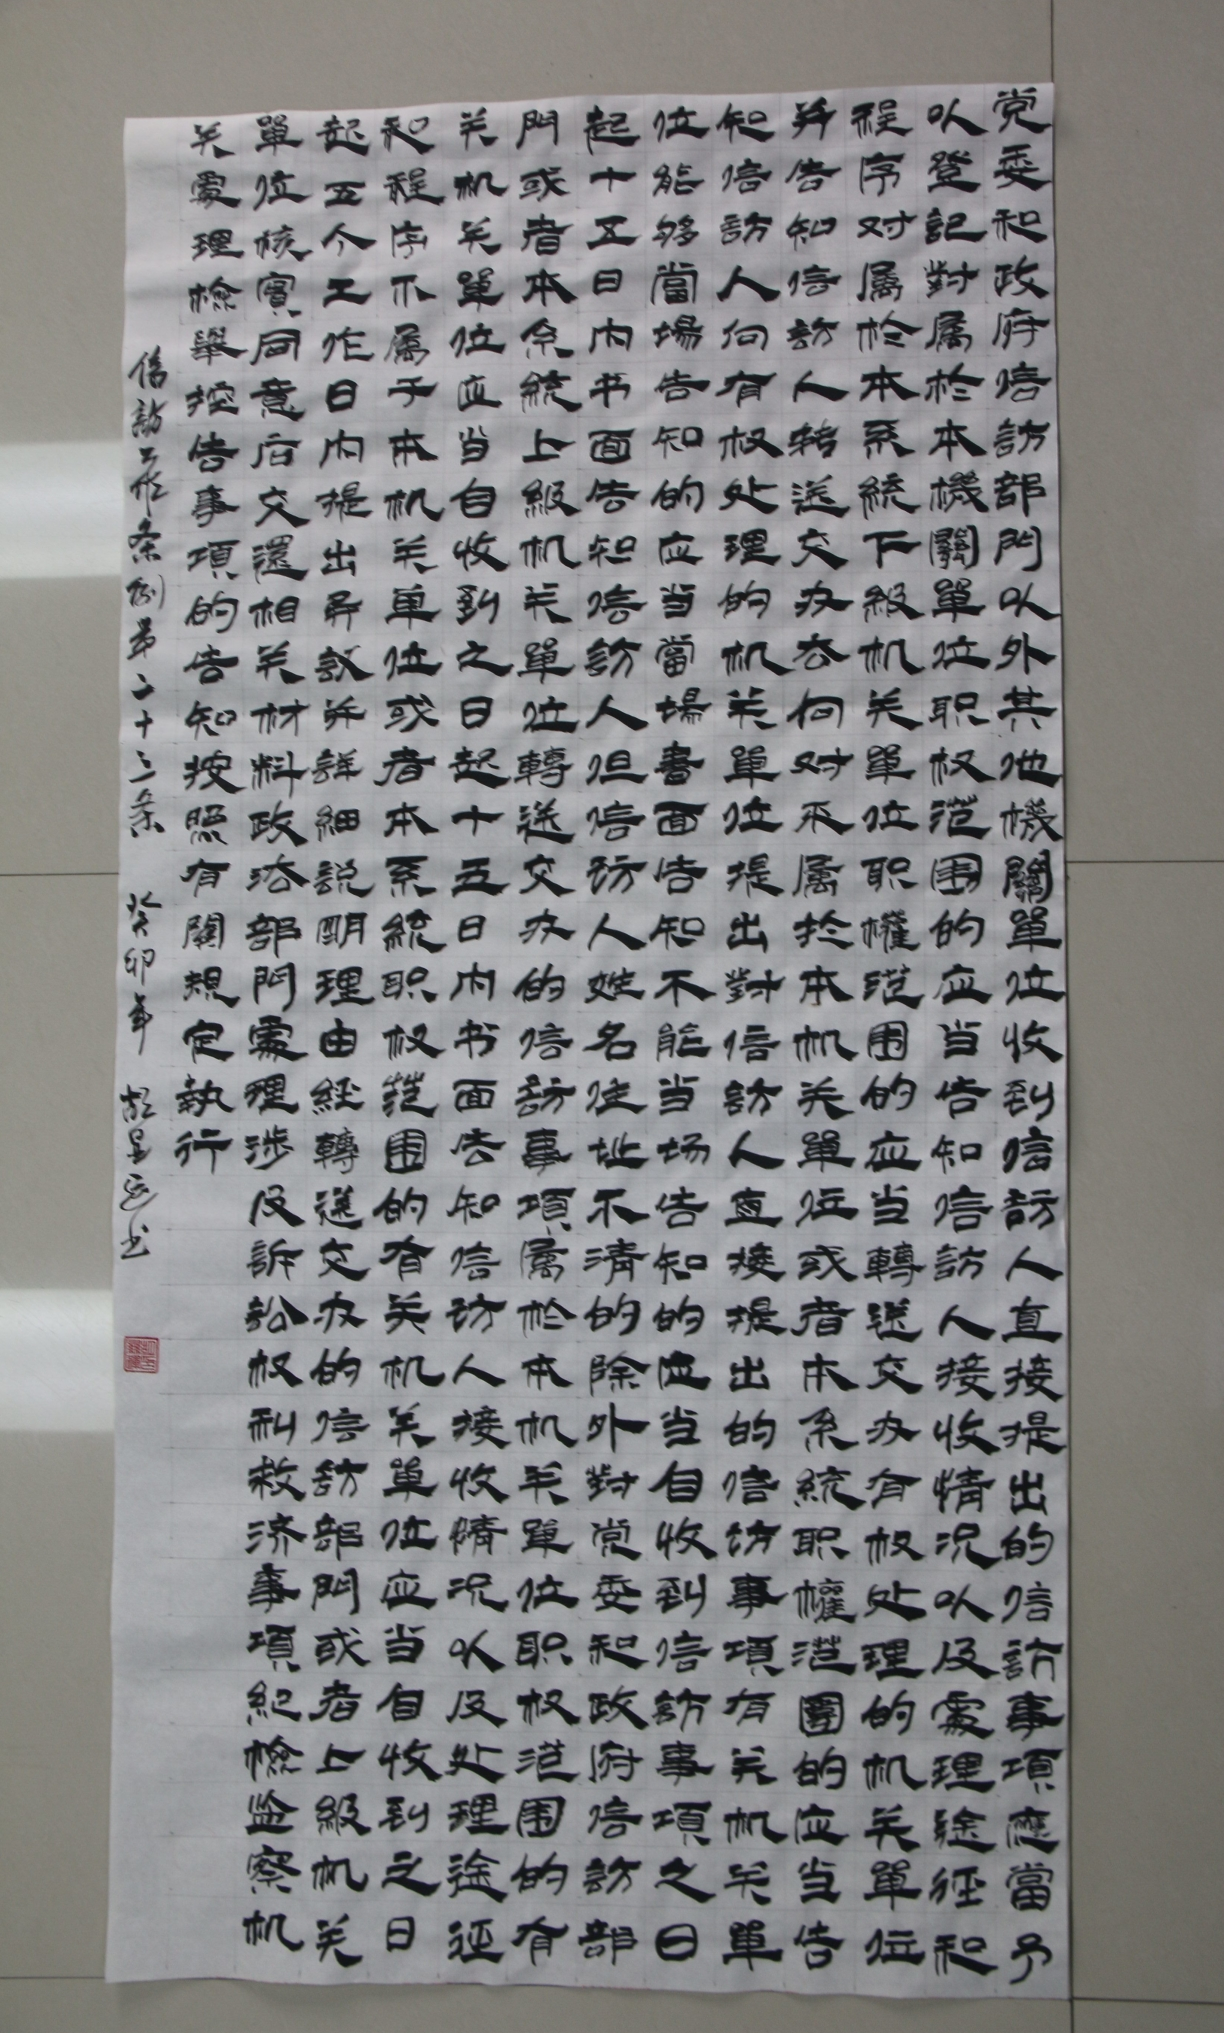 党委和政府信訪部門以外其他機關單位收到信訪人直接提出的信訪事項應當予
以登記對属於本機關單位职权范围的应当告知信訪人接收情况以及處理途徑和
程序对属於本系統下級机关單位职權范围的应当轉送交办有权处理的机关單位
并告知信訪人转送交办去向对不属於本机关單位或者本系統职權范圍的应当告
知信訪人向有权处理的机关單位提出對信訪人直接提出的信访事項有关机关單
位能够當場告知的应当當場書面告知不能当场告知的应当自收到信訪事項之日
起十五日内书面告知信訪人但信访人姓名住址不清的除外對党委和政府信訪部
門或者本系統上級机关單位轉送交办的信訪事項属於本机关單位职权范围的有
关机关單位应当自收到之日起十五日内书面告知信访人接收情况以及处理途径
和程序不属于本机关单位或者本系統职权范围的有关机关單位应当自收到之日
起五个工作日内提出异議并詳細説明理由經轉送交办的信訪部門或者上級机关
單位核實同意后交還相关材料政法部門處理涉及訴訟权利救济事項紀檢监察机
关處理檢舉控告事項的告知按照有關規定執行
信訪工作条例第二十三条 癸卯年 书